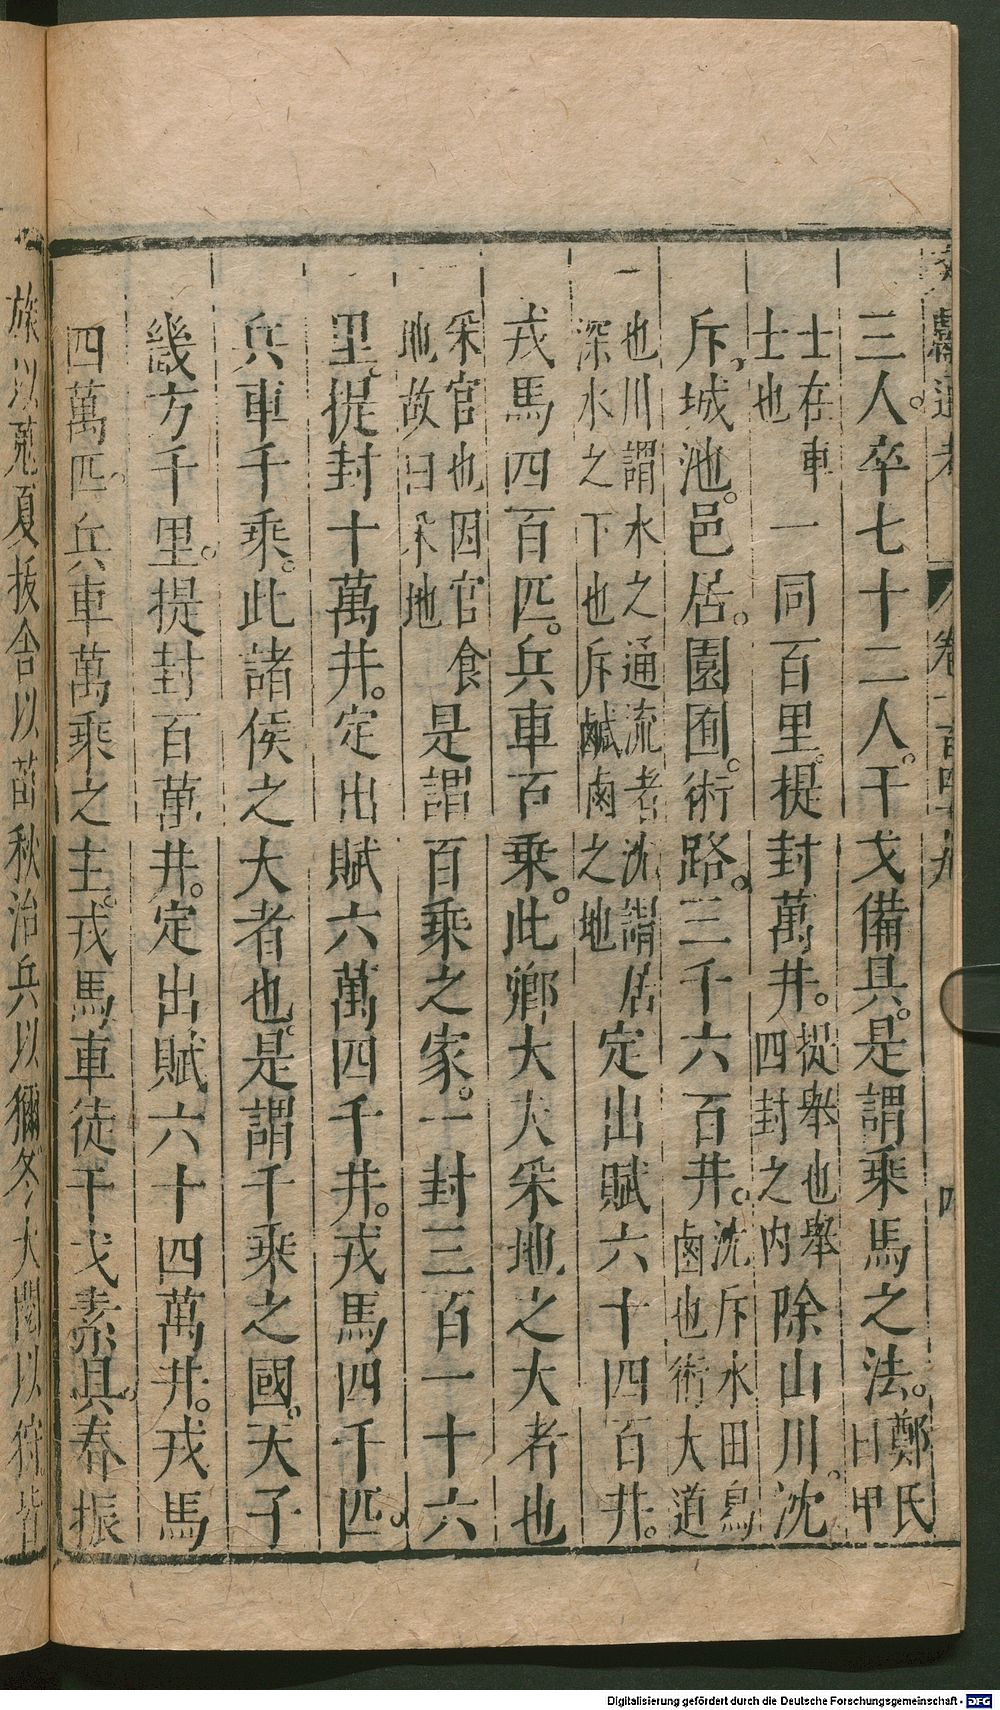 獻通考 卷一百
三人。卒七十二人。干戈備具。是謂乘馬之法。鄭氏曰甲
士在車士也一同百里。提封萬井。提舉也舉四封之內除山川。沈
斥。城池。邑居。園囿。術路。三千六百井。沈斥水田舄鹵也術大道
也川謂水之通流者沈謂居深水之下也斥鹹鹵之地定出賦六十四百井。
戎馬四百匹。兵車百乘。此鄉大夫采地之大者也
采官也因官食地故曰采地是謂百乘之家。一封三百一十六
里。提封十萬井。定出賦六萬四千井。戎馬四千匹。
兵車千乘。此諸侯之大者也。是謂千乘之國。天子
幾方千里。提封百萬井。定出賦六十四萬井。戎馬
四萬匹。兵車萬乘之主。戎馬車徒干戈素具。春振
旅以蒐夏拔舍以苗秋治兵以獮冬大閱以狩。皆
Digitalisierung gefördert durch die Deutsche Forschungsgemeinschaft - DFG